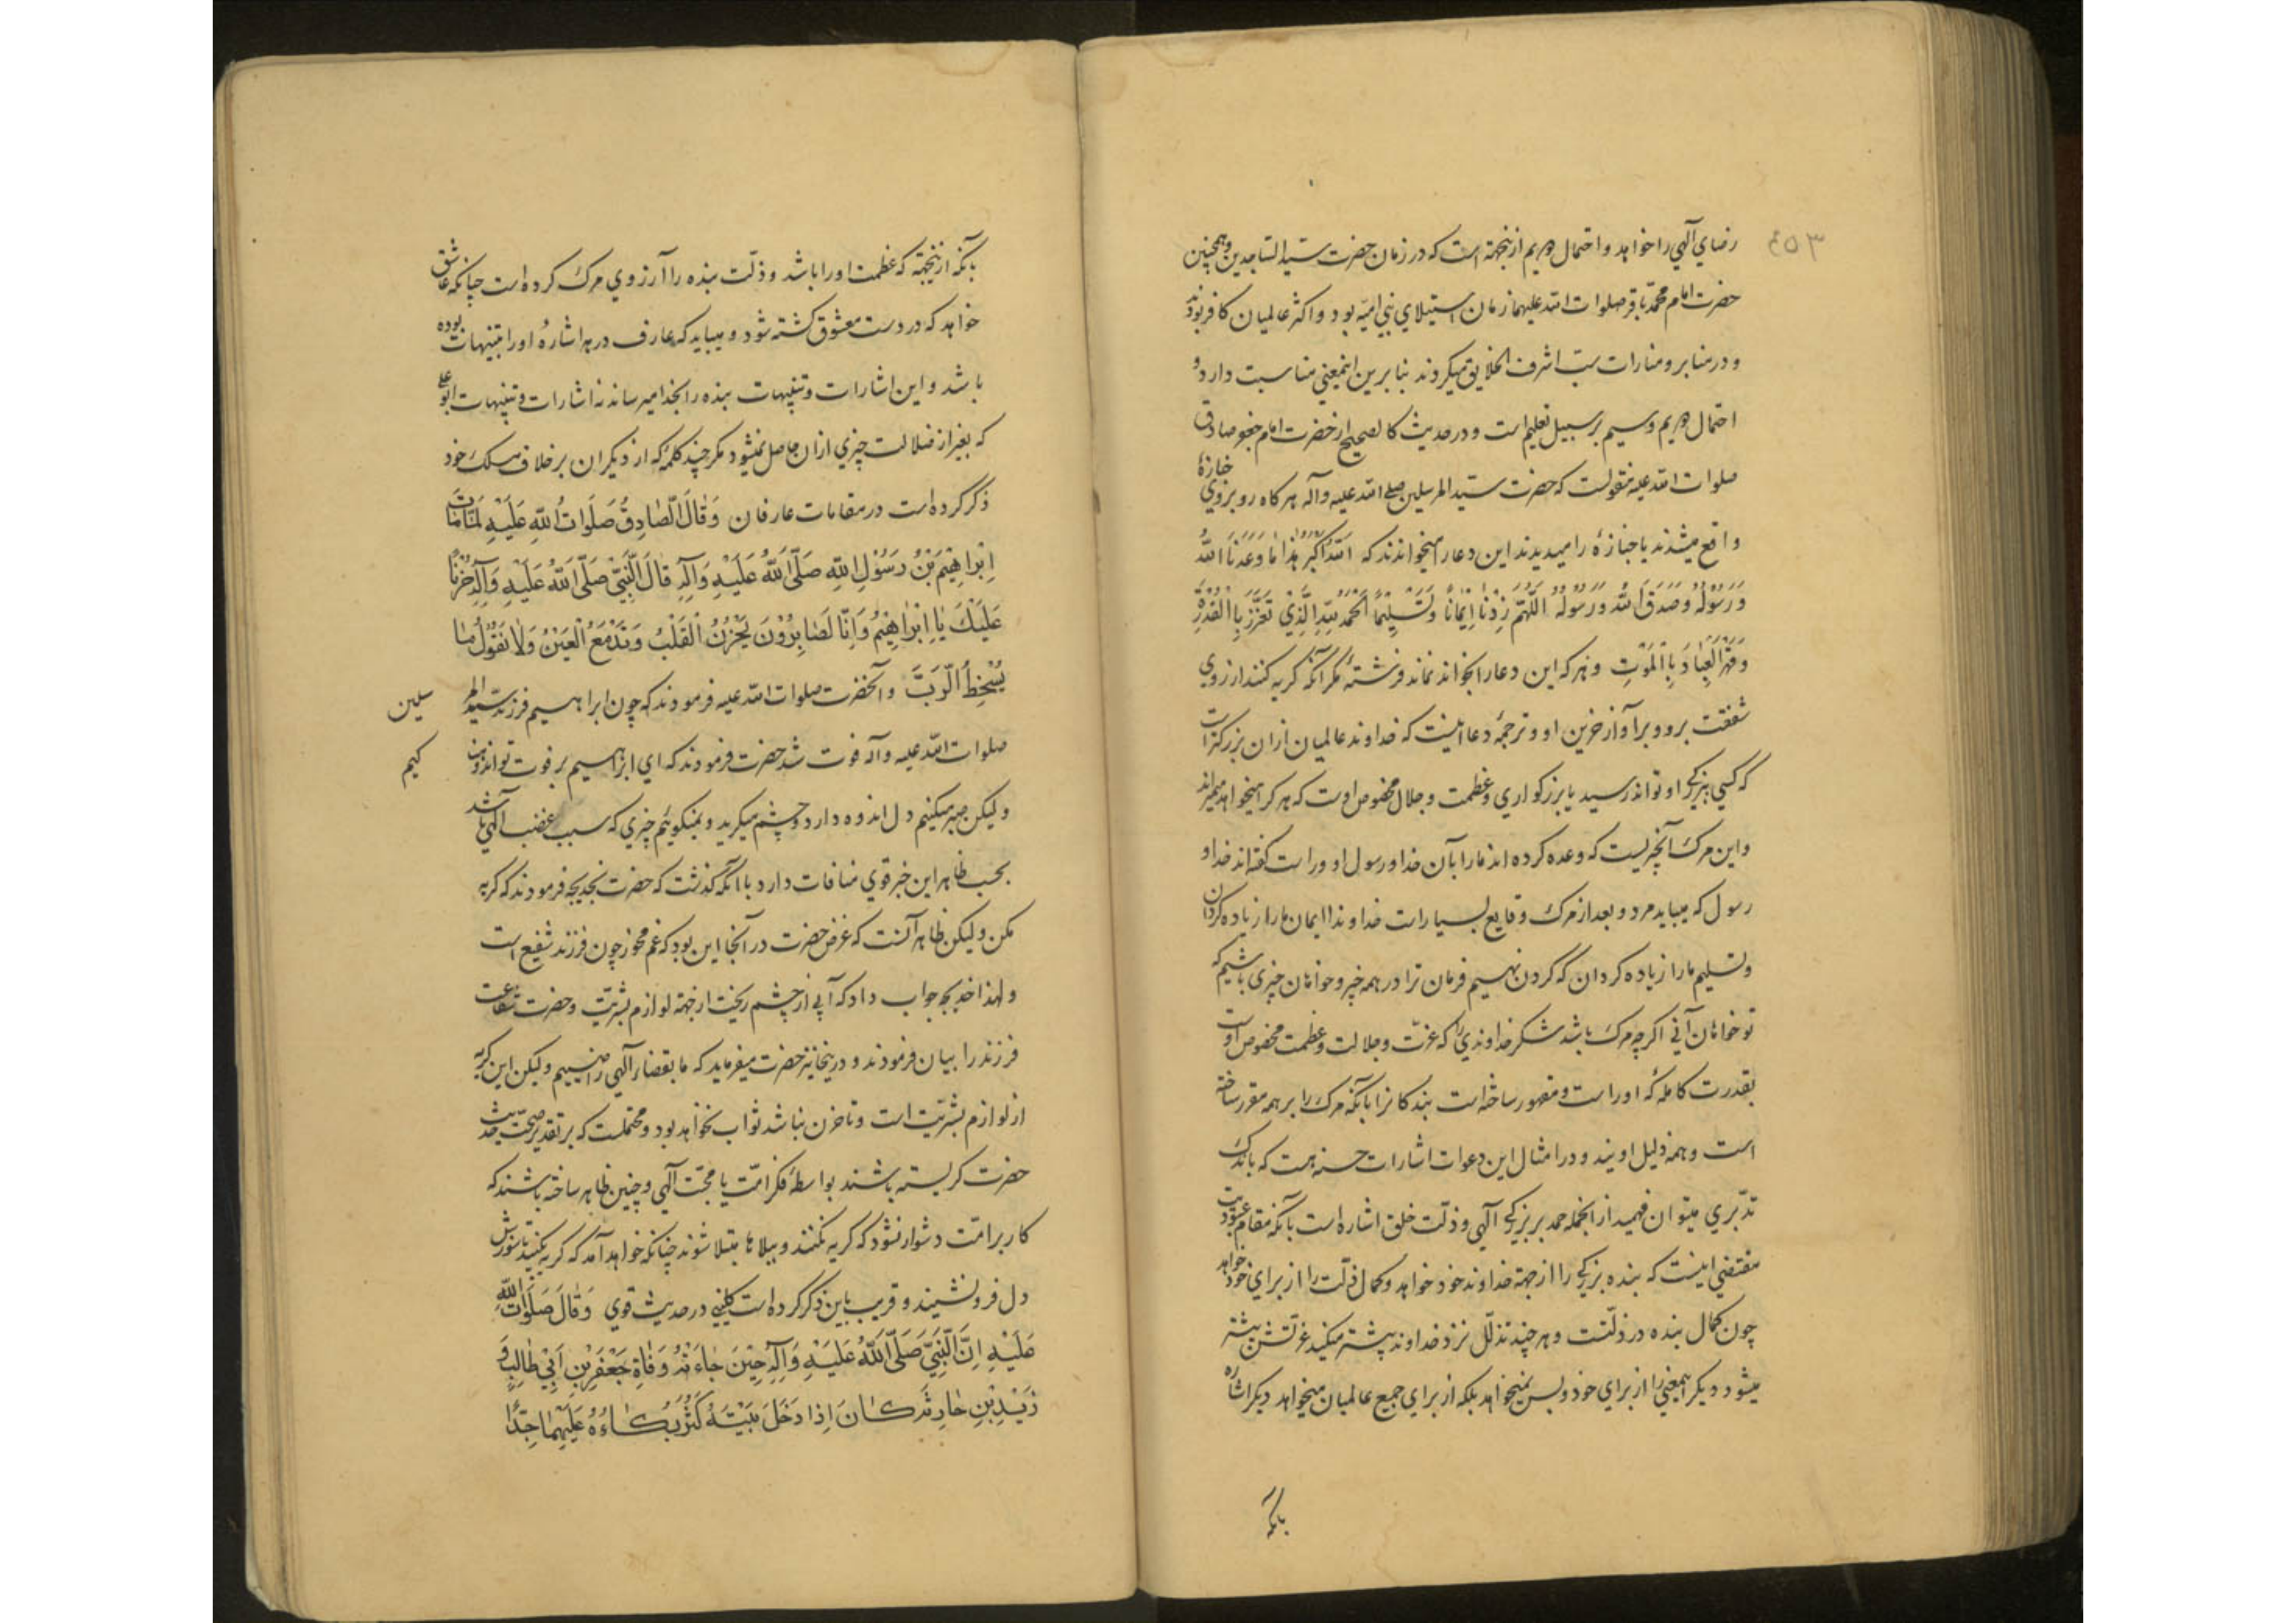 ٤٥٣
رضاي آلهي را خواهد و احتمال دويم ازينجهة است كه در زمان حضرت سيد الساجدين و همچنين
حضرت امام محمد باقر صلوات الله عليهما زمان استيلاي بني اميه بود و اكثر عالميان كافر بودند
و در منابر و منارات سب اشرف الخلايق ميكردند بنا برين اينمعني مناسبت دارد و
احتمال دويم و سيم بر سبيل تعليم است و در حديث كالصحيح از حضرت امام جعفر صادق
صلوات الله عليه منقولست كه حضرت سيد المرسلين صلي الله عليه و آله هر كاه رو بروي جنازۀ
واقع ميشدند يا جنازۀ را ميديدند اين دعا را ميخواندند كه اَللّٰهُ اَكْبَرُ هٰذا مٰا وَعَدَنَا اللّٰهُ
وَرَسُوْلُهُ وَصَدَقَ اللّٰهُ وَرَسُوْلُهُ اَللّٰهُمَّ زِدْنٰا اِيْمٰانًا وَتَسْلِيْمًا اَلْحَمْدُ لِلّٰهِ الَّذِيْ تَعَزَّزَ بِالْقُدْرَةِ
وَقَهَرَ الْعِبٰادَ بِالْمَوْتِ و هر كه اين دعا را بخواند نماند فرشتۀ مكر آنكه كريه كنند از روي
شفقت برو و بر آواز حزين او و ترجمۀ دعا اينست كه خداوند عالميان ازان بزركتر است
كه كسي ببزركي او تواند رسيد يا بزركواري و عظمت و جلال مخصوص اوست كه هر كرا ميخواهد ميميراند
و اين مرك آنچيزيست كه وعده كرده اند ما را بآن خدا و رسول او و راست كفته اند خدا و
رسول كه ميبايد مرد و بعد از مرك وقايع بسيار است خداوندا ايمان ما را زياده كردان
و تسليم ما را زياده كردان كه كردن نهيم فرمان ترا در همه چيز و خواهان چيزي باشيم كه
تو خواهان آني اكرچه مرك باشد شكر خداوندي را كه عزت و جلالت و عظمت مخصوص اوست
بقدرت كاملۀ كه او راست و مقهور ساخته است بندكانرا بآنكه مرك را بر همه مقرر ساخته
است و همه ذليل اويند و در امثال اين دعوات اشارات حسنه هست كه باندك
تدبري ميتوان فهميد از انجمله حمد بر بزركي آلهي و ذلت خلق اشاره است بآنكه مقام عبوديت
مقتضي اينست كه بنده بزركي را از جهة خداوند خود خواهد و كمال ذلت را از براي خود خواهد
چون كمال بنده در ذلتست و هر چند تذلل نزد خداوند بيشتر ميكند عزتش بيشتر
ميشود ديكر اينمعني را از براي خود و بس نميخواهد بلكه از براي جميع عالميان ميخواهد ديكر اشاره
بآنكه
بآنكه ازينجهة كه عظمت او را باشد و ذلت بنده را آرزوي مرك كرده است چنانكه عاشق
خواهد كه در دست معشوق كشته شود و ميبايد كه عارف در هر اشارۀ او را تنبيهات بوده
باشد و اين اشارات و تنبيهات بنده را بخدا ميرساند نه اشارات و تنبيهات ابو علي
كه بغير از ضلالت چيزي ازان حاصل نميشود مكر چند كلمۀ كه از ديكران بر خلاف مسلك خود
ذكر كرده است در مقامات عارفان وَقٰالَ الصّٰادِقُ صَلَوٰاتُ اللّٰهِ عَلَيْهِ لَمّٰا مٰاتَ
اِبْرٰاهِيْمُ بْنُ رَسُوْلِ اللّٰهِ صَلَّى اللّٰهُ عَلَيْهِ وَآلِهِ قٰالَ النَّبِيُّ صَلَّى اللّٰهُ عَلَيْهِ وَآلِهِ حَزِنّٰا
عَلَيْكَ يٰا اِبْرٰاهِيْمُ وَاِنّٰا لَصٰابِرُوْنَ يَحْزُنُ الْقَلْبُ وَتَدْمَعُ الْعَيْنُ وَلٰا نَقُوْلُ مٰا
يُسْخِطُ الرَّبَّ و آنحضرت صلوات الله عليه فرمودند كه چون ابراهيم فرزند سيد المرسلين
صلوات الله عليه و آله فوت شد حضرت فرمودند كه اي ابراهيم بر فوت تو اندوهناكيم
وليكن صبر ميكنيم دل اندوه دارد و چشم ميكريد و نميكوئيم چيزي كه سبب غضب آلهي باشد
بحسب ظاهر اين خبر قوي منافات دارد با آنكه كذشت كه حضرت بخديجه فرمودند كه كريه
مكن وليكن ظاهر آنست كه غرض حضرت در آنجا اين بود كه غم مخور چون فرزند شفيع است
و لهذا خديجه جواب داد كه آبي از چشم ريخت از جهة لوازم بشريت و حضرت شفاعت
فرزند را بيان فرمودند و درينجا نيز حضرت ميفرمايد كه ما بقضاء آلهي راضييم وليكن اين كريه
از لوازم بشريت است و تا حزن نباشد ثواب نخواهد بود و محتملست كه بر تقدير صحت حديث
حضرت كريسته باشند بواسطۀ فكر امت يا محبت آلهي و چنين ظاهر ساخته باشند كه
كار بر امت دشوار نشود كه كريه نكنند و ببلاها مبتلا شوند چنانكه خواهد آمد كه كريه بكنيد تا سوزش
دل فرو نشيند و قريب باين ذكر كرده است كليني در حديث قوي وَقٰالَ صَلَوٰاتُ اللّٰهِ
عَلَيْهِ اِنَّ النَّبِيَّ صَلَّى اللّٰهُ عَلَيْهِ وَآلِهِ حِيْنَ جٰاءَتْهُ وَفٰاةُ جَعْفَرِ بْنِ اَبِيْ طٰالِبٍ وَ
زَيْدِ بْنِ حٰارِثَةَ كٰانَ اِذٰا دَخَلَ بَيْتَهُ كَثُرَ بُكٰاءُهُ عَلَيْهِمٰا جِدًّا